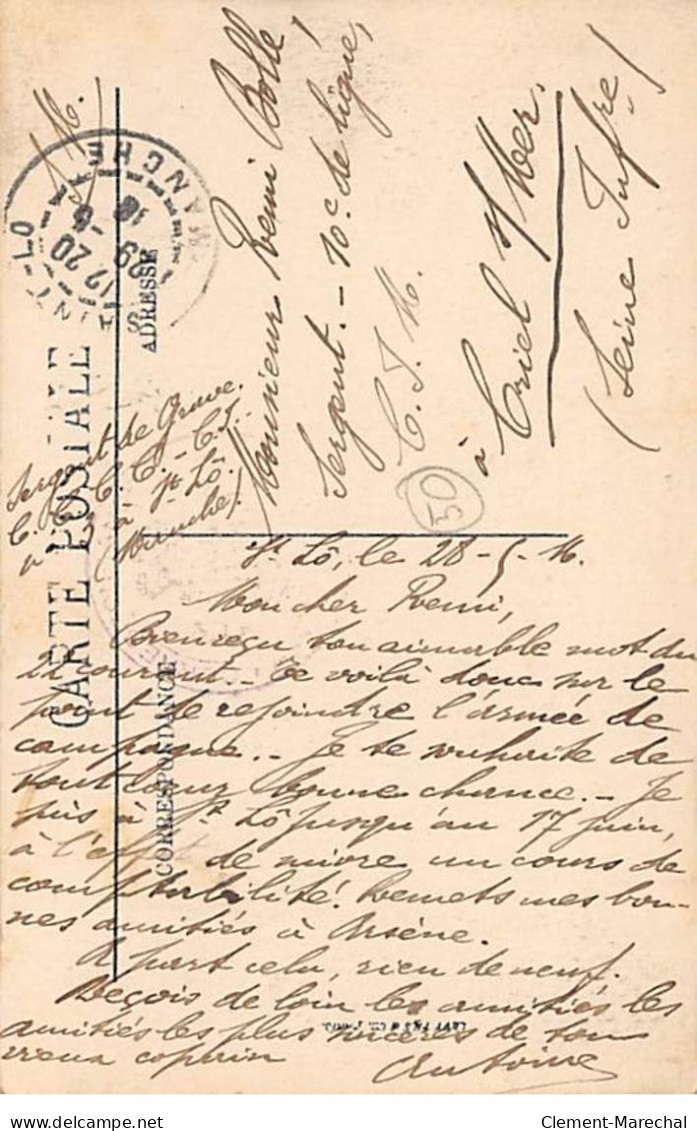 CARTE POSTALE
ADRESSE
CORRESPONDANCE
S. M.
SAINT-LO
MANCHE
12 20
29 -5
16
Monsieur Remi Bollé,
Sergent. - 10e de ligne,
C. I. M.
à Criel s/Mer.
(Seine Infre)
50
Sergent de Grave.
C. C. - C.I.
à St Lô.
(Manche)
St Lô, le 28-5-16.
Mon cher Remi,
Bien reçu ton aimable mot du
22 courant. - Te voilà donc sur le
point de rejoindre l'armée de
campagne. - Je te souhaite de
tout coeur bonne chance. - Je
suis à St Lô jusqu'au 17 juin,
à l'effet de suivre un cours de
comptabilité. Remets mes bon-
nes amitiés à Arsène.
A part cela, rien de neuf.
Reçois de loin les amitiés les
amitiés les plus sincères de ton
vieux copain Antoine
Clement-Marechal (France)